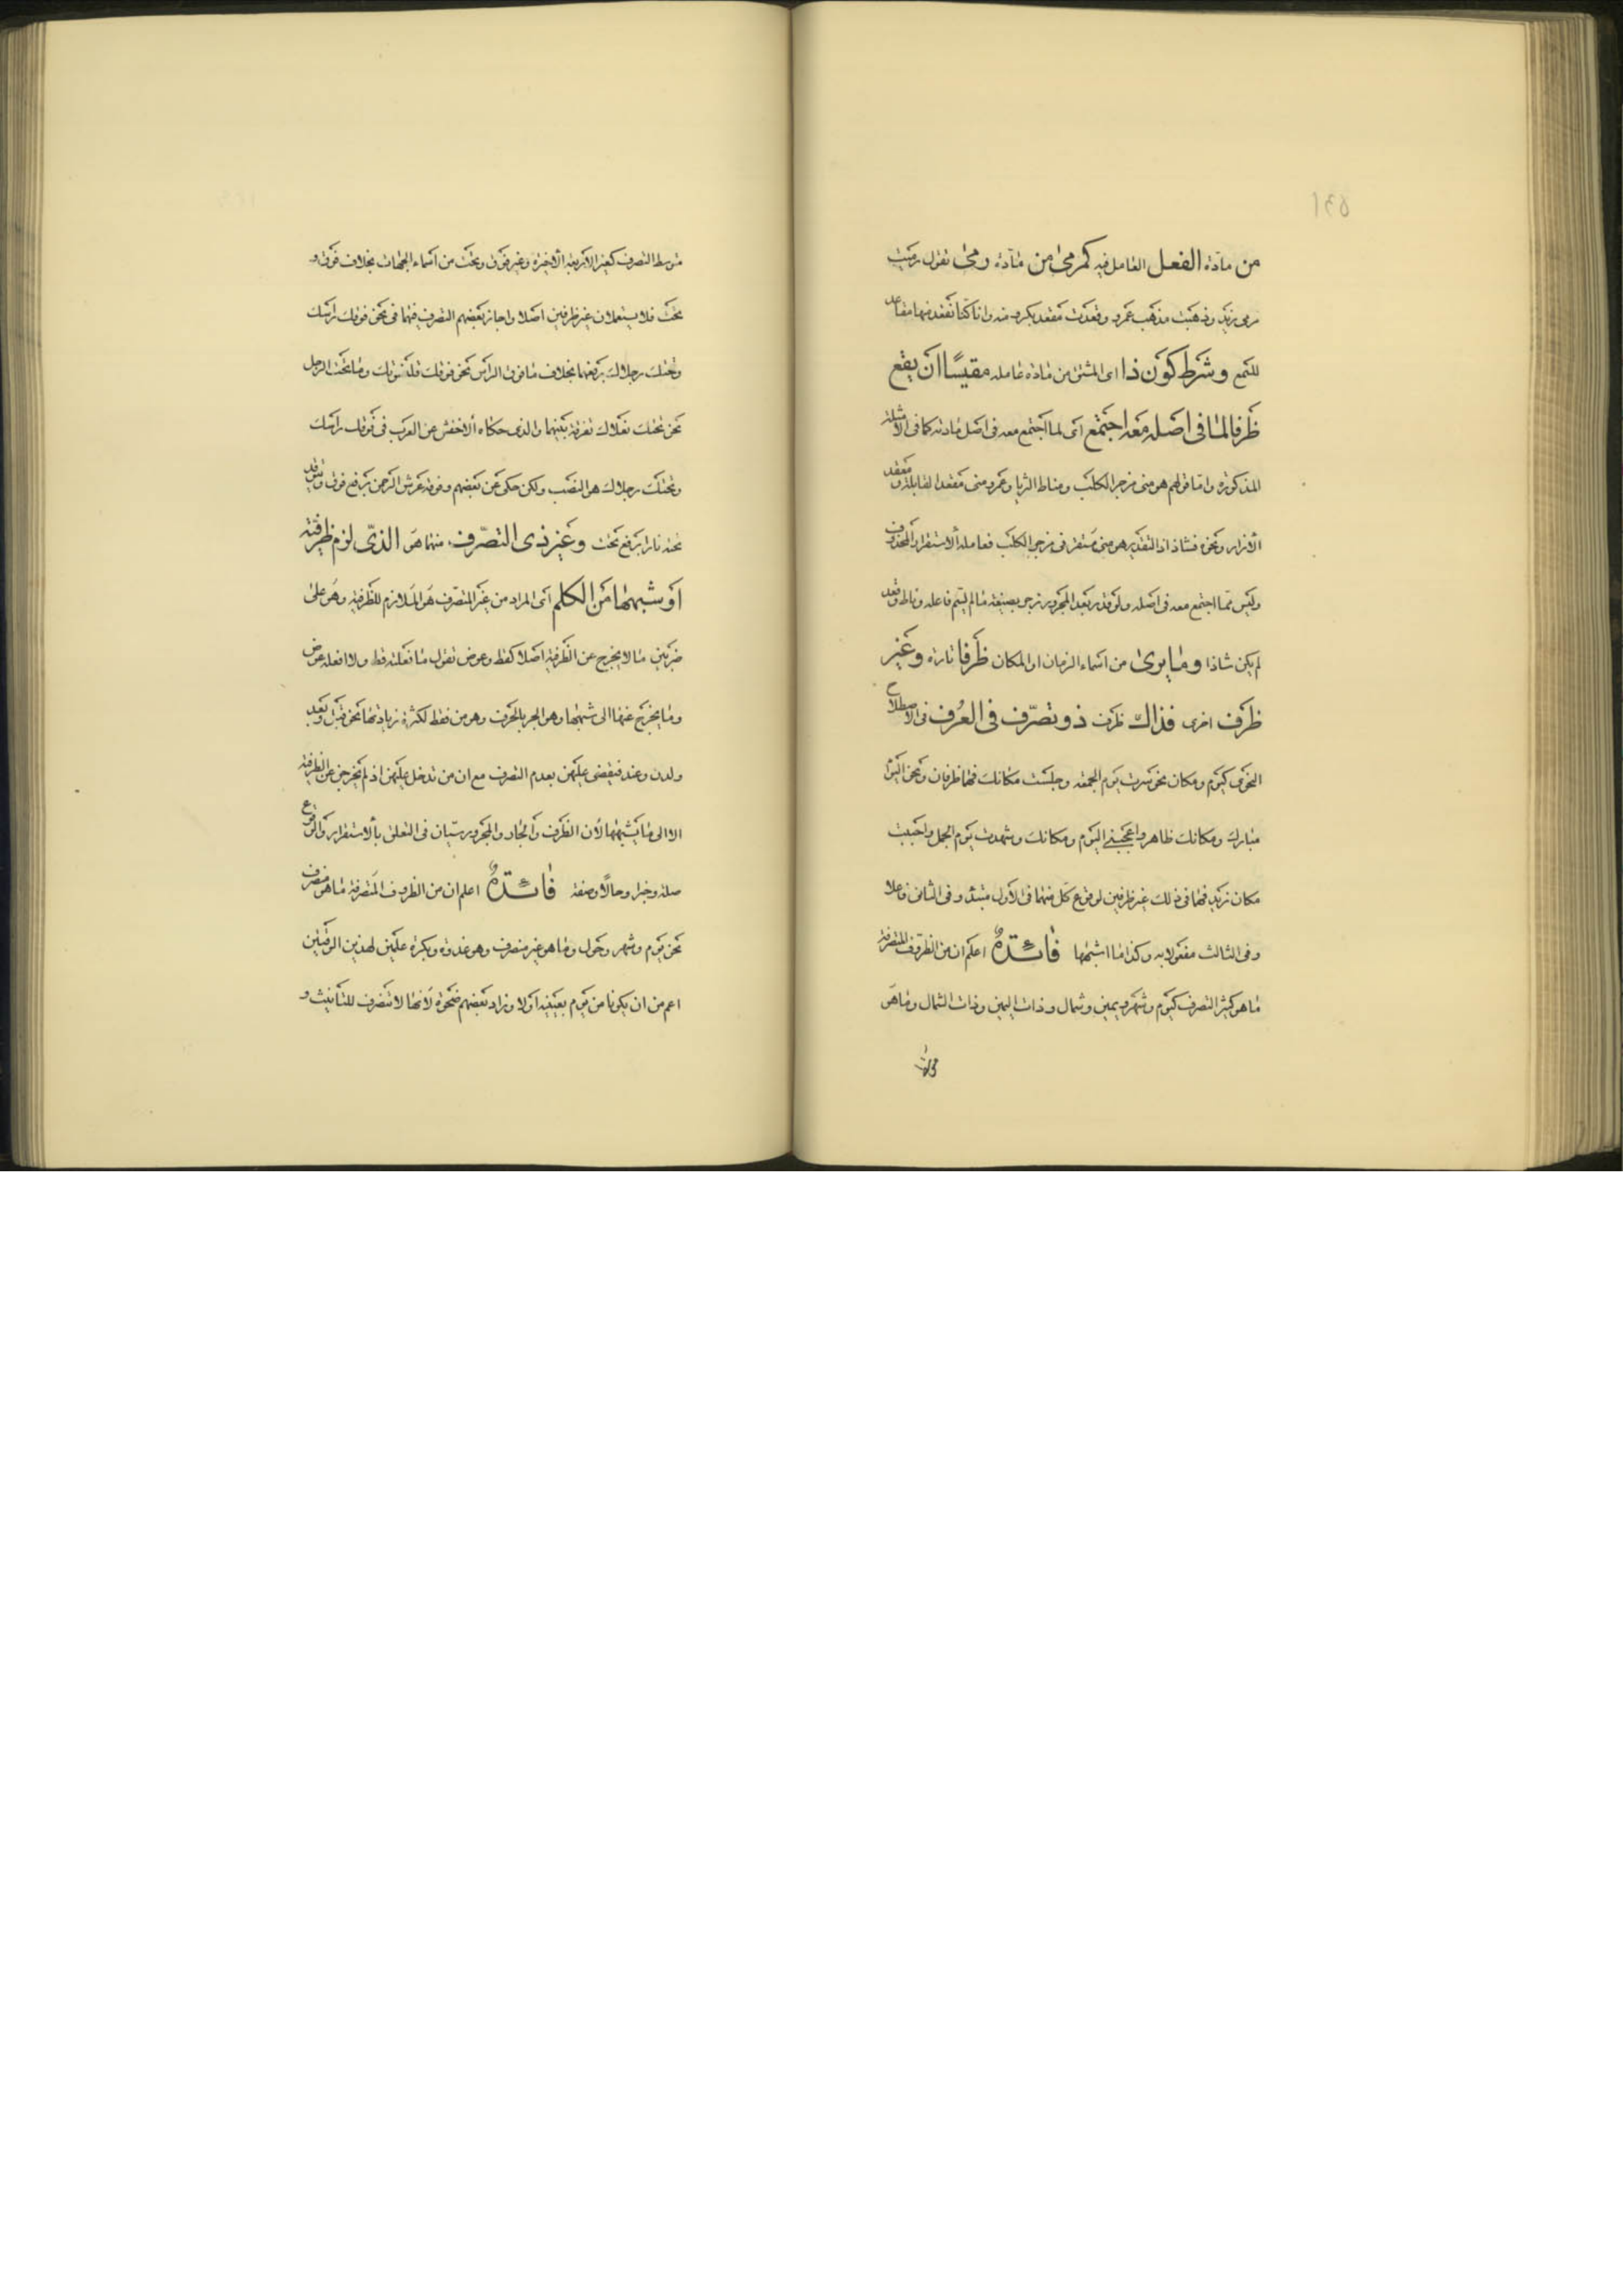 من مادة الفعل العامل فيه كمرمى من مادة رمى تقول رميت
مرمى زيد وذهبت مذهب عمرو وقعدت مقعد بكر ومنه وانا كنا نقعد منها مقاعد
للسمع وشرط كون ذا اى المشتق من مادة عامله مقيسا ان يقع
ظرفا لما فى اصله معه اجتمع اى لما اجتمع معه فى اصل مادته كما فى الامثلة
المذكورة واما قولهم هو منى مزجر الكلب ومناط الثريا وعمرو منى مقعد القابلة ومعقد
الازار ونحوه فشاذ اذ التقدير هو منى مستقر فى مزجر الكلب فعامله الاستقرار المحذوف
وليس مما اجتمع معه فى اصله ولو قدر بعد المجرور زجر بصيغة ما لم يسم فاعله وناط وقعد
لم يكن شاذا وما يرى من اسماء الزمان او المكان ظرفا تارة وغير
ظرف اخرى فذاك ظرف ذو تصرف فى العرف فى الاصطلاح
النحوى كيوم ومكان نحو سرت يوم الجمعة وجلست مكانك فهما ظرفان ونحو اليوم
مبارك ومكانك ظاهر واعجبنى اليوم ومكانك وشهدت يوم الجمل واحببت
مكان زيد فهما فى ذلك غير ظرفين لوقوع كل منهما فى الاول مبتدأ وفى الثانى فاعلا
وفى الثالث مفعولا به وكذا ما اشبهها فائدة اعلم ان من الظروف المتصرفة
ما هو كثير التصرف كيوم وشهر ويمين وشمال وذات اليمين وذات الشمال وما هو
متوسط التصرف كغير الاربعة الاخيرة وغير فوق وتحت من اسماء الجهات بخلاف فوق و
تحت فلا يستعملان غير ظرفين اصلا واجاز بعضهم التصرف فيهما فى نحو فوقك راسك
وتحتك رجلاك برفعهما بخلاف ما فوق الراس نحو فوقك قلنسوتك وما تحت الرجل
نحو تحتك نعلاك تفرقة بينهما والذى حكاه الاخفش عن العرب فى فوقك راسك
وتحتك رجلاك هو النصب ولكن حكى عن بعضهم وفوقه عرش الرحمن برفع فوق وتوقد
تحته نارا برفع تحت وغير ذى التصرف منهما هو الذى لزم ظرفية
او شبهها من الكلم اى المراد من غير المتصرف هو الملازم للظرفية وهو على
ضربين ما لا يخرج عن الظرفية اصلا كقط وعوض تقول ما فعلته قط ولا افعله عوض
وما يخرج عنها الى شبهها وهو الجر بالحرف وهو من فقط لكثرة زيادتها نحو قبل وبعد
ولدن وعند فيقضى عليهن بعدم التصرف مع ان من تدخل عليهن اذ لم يخرجن عن الظرفية
الا الى ما يشبهها لان الظرف والجار والمجرور سيان فى التعلق بالاستقرار والوقوع
صلة وخبرا وحالا وصفة فائدة اعلم ان من الظروف المتصرفة ما هو منصرف
نحو يوم وشهر وحول وما هو غير منصرف وهو غدوة وبكرة علمين لهذين الوقتين
اعم من ان يكونا من يوم بعينه اولا وزاد بعضهم ضحوة لانها لا تنصرف للتأنيث و